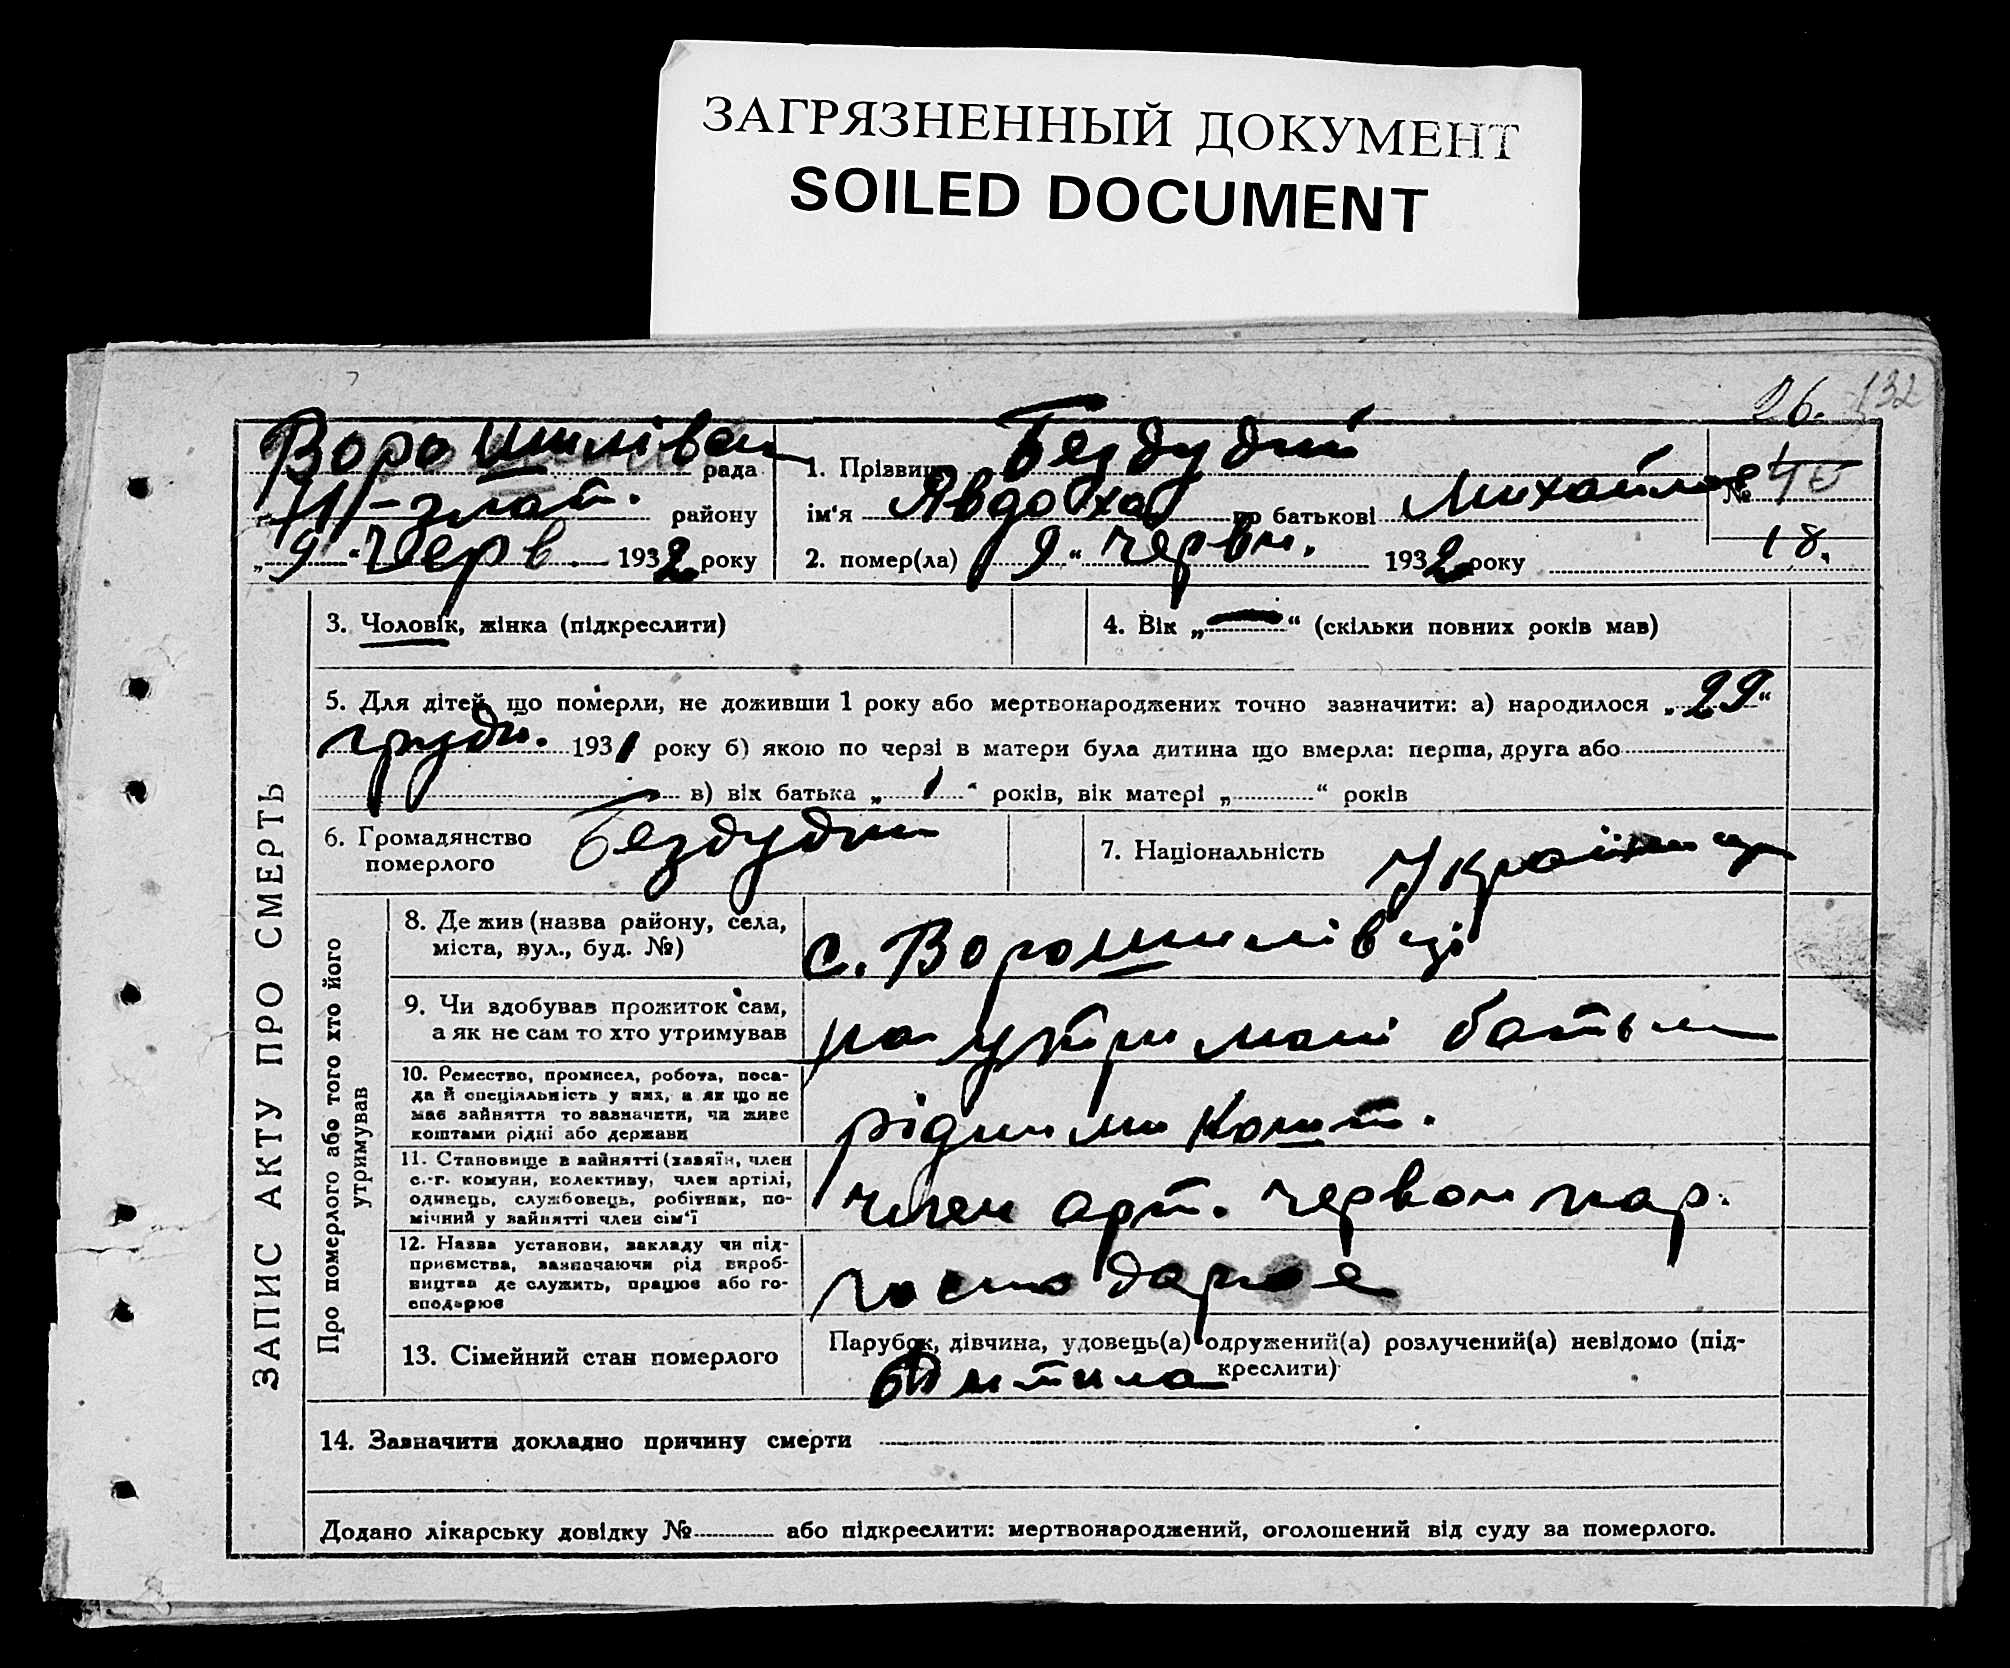 ЗАГРЯЗНЕННЫЙ ДОКУМЕНТ
SOILED DOCUMENT
26. 132
Ворошилівсь рада
району
„ 9 “ Черв. 1932 року
1. Прізвище Бездудній
ім‘я Явдоха по батькові Михайлов
2. помер(ла) „ 9 “ червн. 1932 року
№ 40
18.
3. Чоловік, жінка (підкреслити)
4. Вік „ — “ (скільки повних років мав)
5. Для дітей, що померли, не доживши 1 року або мертвонароджених точно зазначити: а) народилося „ 29 “
грудн. 1931 року б) якою по черзі в матери була дитина що вмерла: перша, друга або
в) вік батька „ “ років, вік матері „ “ років
6. Громадянство
померлого
Бездудни
7. Національність Українц
ЗАПИС АКТУ ПРО СМЕРТЬ
Про померлого або того хто його
утримував
8. Де жив (назва району, села,
міста, вул., буд. №)
с. Ворошилівці
9. Чи здобував прожиток сам,
а як не сам то хто утримував
на утримані батьк
10. Ремество, промисел, робота, поса-
да й спеціяльність у них, а як що не
має зайняття то зазначити, чи живе
коштами рідні або держави
рідними Кошт.
11. Становище в зайнятті (хазяїн, член
с.-г. комуни, колективу, член артілі,
одинець, службовець, робітник, по-
мічний у зайнятті член сім‘ї
член арт. червон пар.
12. Назва установи, закладу чи під-
приємства, зазначаючи рід вироб-
ництва де служить, працює або го-
сподарює
господарює
13. Сімейний стан померлого
Парубок, дівчина, удовець(а) одружений(а) розлучений(а) невідомо (під-
креслити)
дитина
14. Зазначити докладно причину смерти
Додано лікарську довідку № або підкреслити: мертвонароджений, оголошений від суду за померлого.